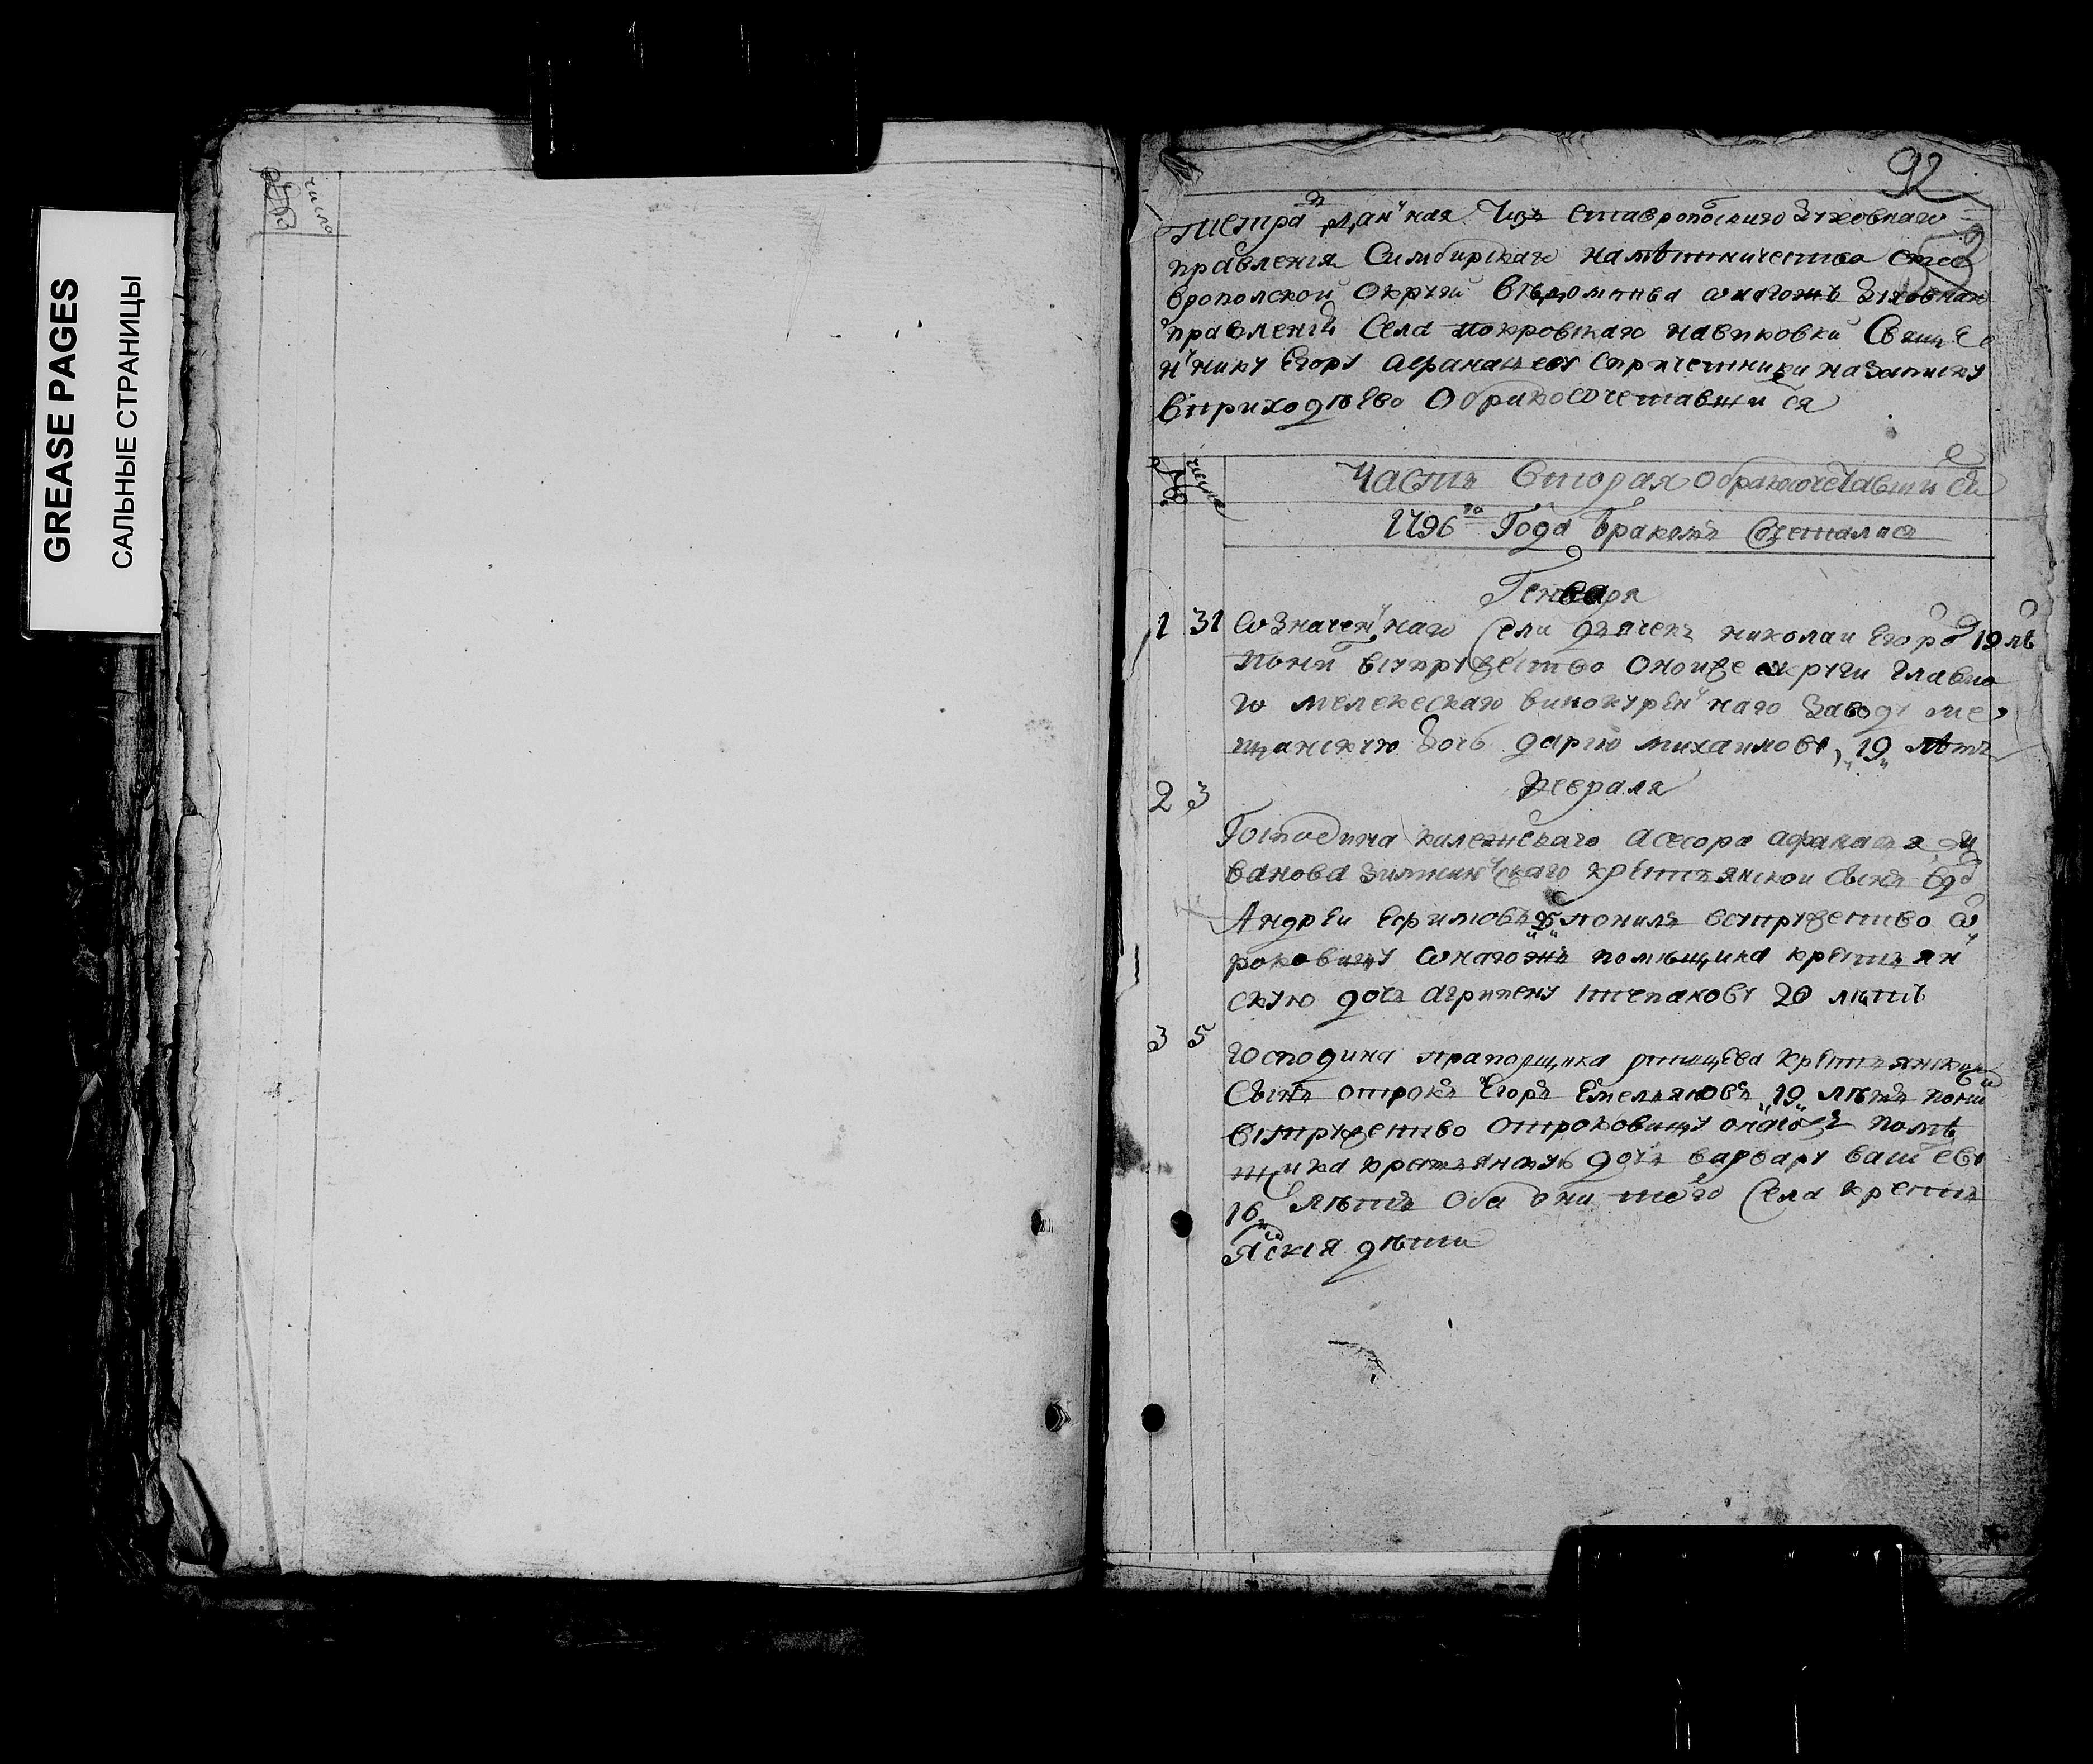 GREASE PAGES
САЛЬНЫЕ СТРАНИЦЫ
числа
92
тетрадь данная изъ ставропольскаго духовнаго
правления Симбирскаго наместничества став
рополской округи ведомства онагожъ духовнаго
правления Села покровскаго Священ
нику Егору афанасьеву спричетники на записку
вприходѣ ево О бракосочетавшихся
числа
Часть вторая о бракосочетавшихся
1796го Года бракомъ сочеталась
Генваря
1 31 Означеннаго Села дьячекъ николаи Егоровъ 19 лѣ
понялъ всупружество оноиже округи главна
го мелекескаго винокуреннаго заводу ме
щанскую дочь дарью михаилову 19 лѣтъ
2 3 февраля
Господина колежскаго асесора афанасья и
ванова крестьянской сынъ
Андреи Ефимовъ понялъ всупружество от
роковицу онагожъ помѣщика крестьян
скую дочь агрипену степанову 20 лѣтъ
3 5 господина прапорщика крестьянской
Сынъ отрокъ Егоръ Емельяновъ 19 лѣтъ понялъ
всупружество отроковицу онагожъ помѣ
щика крестьянскую дочь варвару васильеву
16 лѣтъ Оба они того Села кресть
янския дѣти